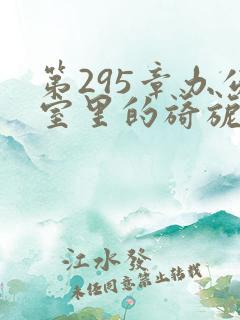 第295章办公
室里的旖旎
江水發
未经同意禁止转载